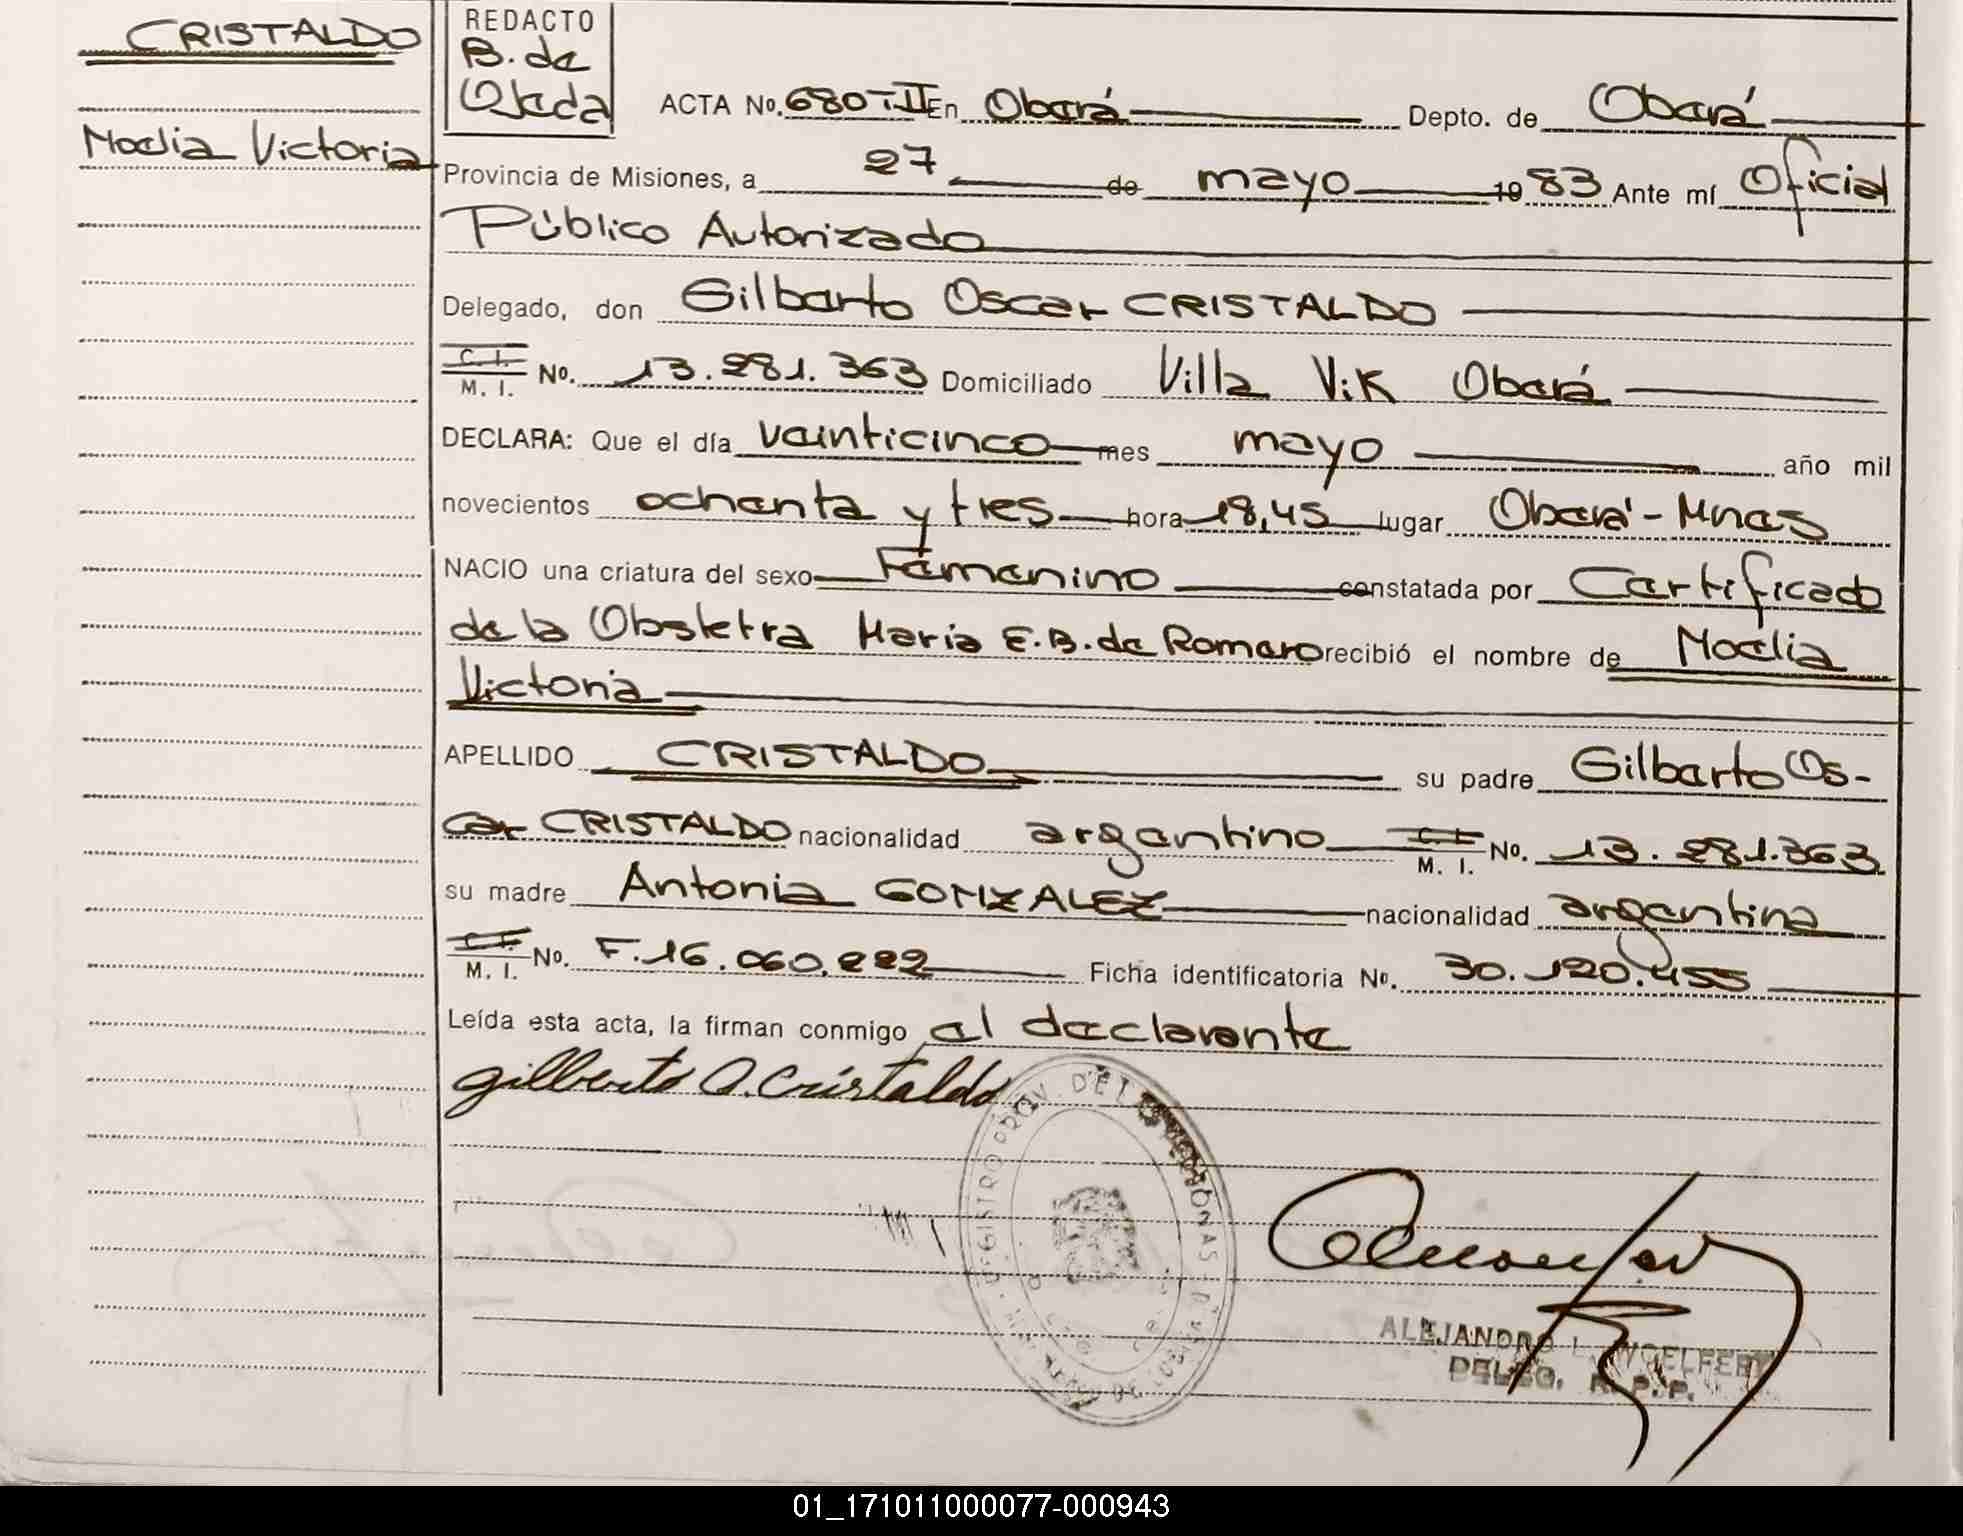 CRISTALDO
Noelia Victoria
REDACTO
B. de
Ojeda
ACTA No. 680 T-II En Oberá Depto. de Oberá
Provincia de Misiones, a 27 de mayo 19 83 Ante mí Oficial
Público Autorizado
Delegado, don Gilberto Oscar CRISTALDO
C. I. M. I. No. 13.281.363 Domiciliado Villa Vik Oberá
DECLARA: Que el día veinticinco mes mayo año mil
novecientos ochenta y tres hora 18,45 lugar Oberá-Mnes
NACIO una criatura del sexo Femenino constatada por Certificado
de la Obstetra María E.B. de Romero recibió el nombre de Noelia
Victoria
APELLIDO CRISTALDO su padre Gilberto Os-
car CRISTALDO nacionalidad argentino C. I. M. I. No. 13.281.363
su madre Antonia GONZALEZ nacionalidad argentina
C. I. M. I. No. F.16.060.222 Ficha identificatoria No. 30.120.455
Leída esta acta, la firman conmigo el declarante
gilberto O. Cristaldo
REGISTRO PROV. DE LAS PERSONAS
ALEJANDRO L. WOELFERT
DELEG. R. P. P.
01_171011000077-000943